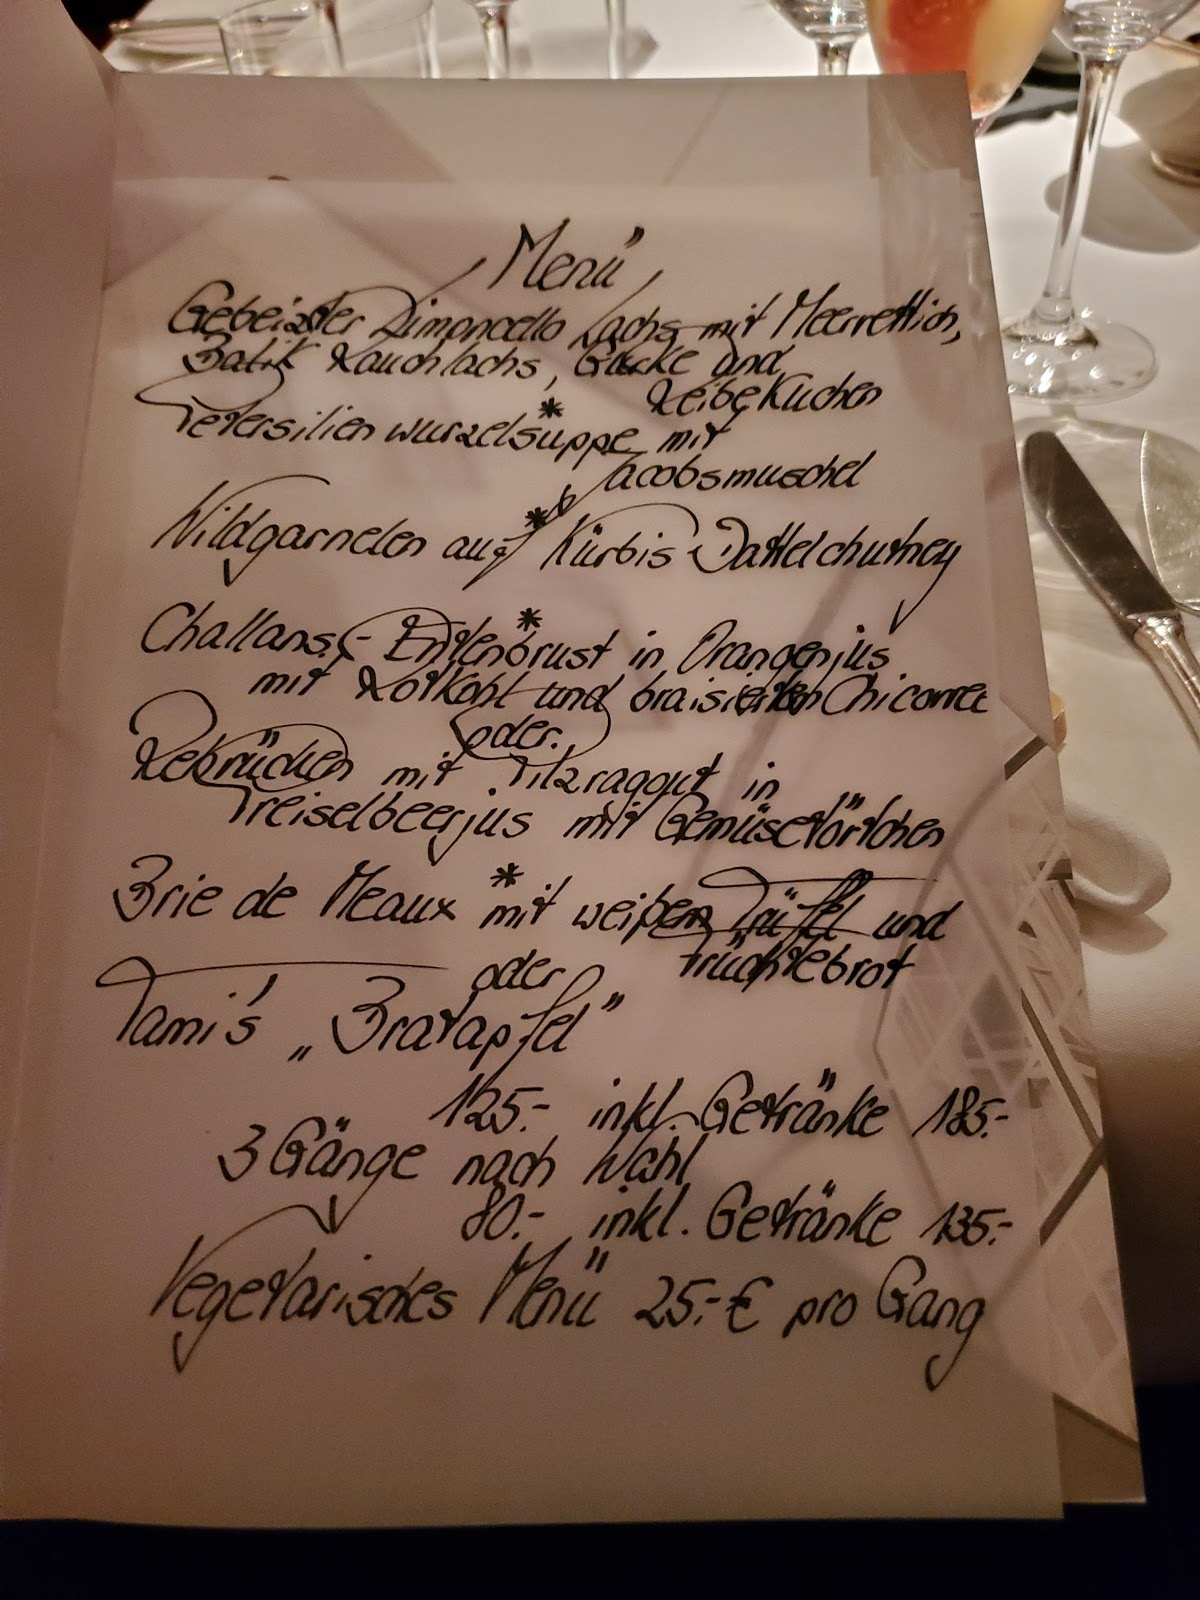 Menü
Gebeizter Limoncello Lachs mit Meerrettich,
Balik Rauchlachs, Gurke und
Reibekuchen
*
Petersilienwurzelsuppe mit
Jacobsmuschel
*
Wildgarnelen auf Kürbis Dattelchutney
*
Challans - Entenbrust in Orangenjus
mit Rotkohl und braisierten Chicorree
oder
Rehrücken mit Pilzragout in
Preiselbeerjus mit Gemüsetörtchen
*
Brie de Meaux mit weißem Trüffel und
Früchtebrot
oder
Tami's „Bratapfel"
125.- inkl. Getränke 185.-
3 Gänge nach Wahl
80.- inkl. Getränke 135.-
Vegetarisches Menü 25.-€ pro Gang